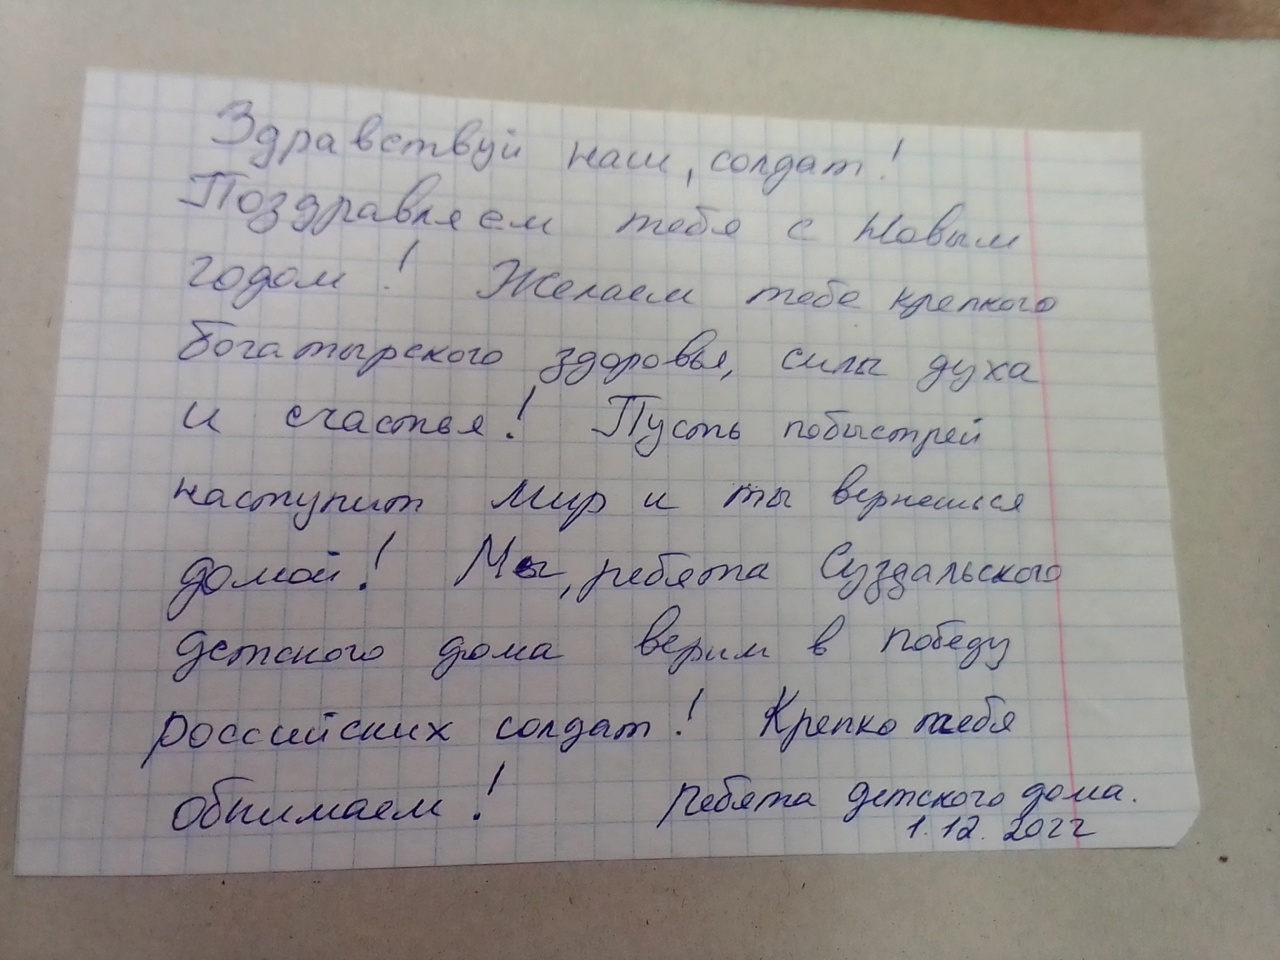 Здравствуй наш, солдат!
Поздравляем тебя с Новым
годом! Желаем тебе крепкого
богатырского здоровья, силы духа
и счастья! Пусть побыстрей
наступит мир и ты вернешься
домой! Мы, ребята Суздальского
детского дома верим в победу
российских солдат! Крепко тебя
обнимаем! ребята детского дома.
1.12.2022